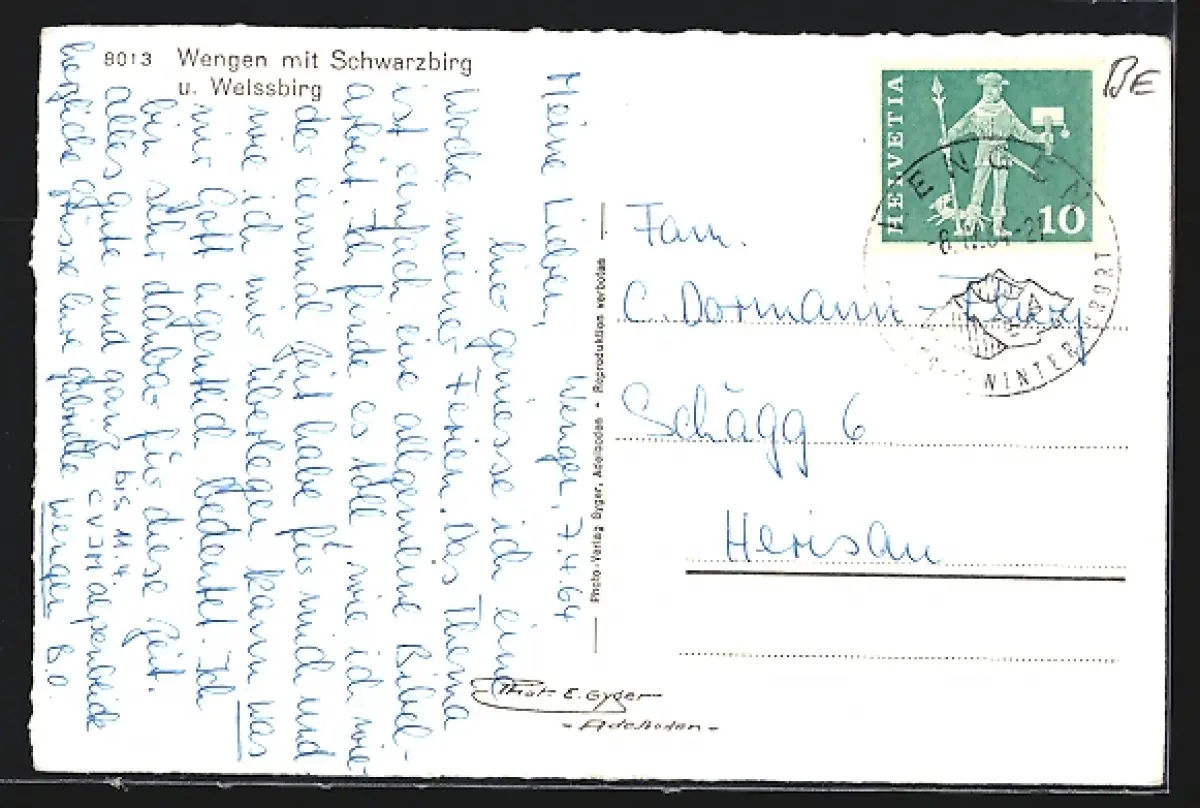 8013 Wengen mit Schwarzbirg
u. Weissbirg
Wengen, 7.4.64
Meine Lieben,
hier geniesse ich eine
Woche meiner Ferien. Das Thema
ist einfach eine allgemeine Bibel-
arbeit. Ich finde es toll, wie ich wie-
der einmal Zeit habe für mich und
wie ich mir überlegen kann was
mir Gott eigentlich bedeutet. Ich
bin sehr dankbar für diese Zeit.
alles gute und ganz
herzliche grüsse Eure
bis 11.4.
CVJM alpenblick
Wengen B.O.
Phot. E. Gyger
- Adelboden -
Photo-Verlag Gyger, Adelboden - Reproduktion verboten
BE
HELVETIA
10
WINTER
Fam.
C. Dormann -
Schägg 6
Herisau